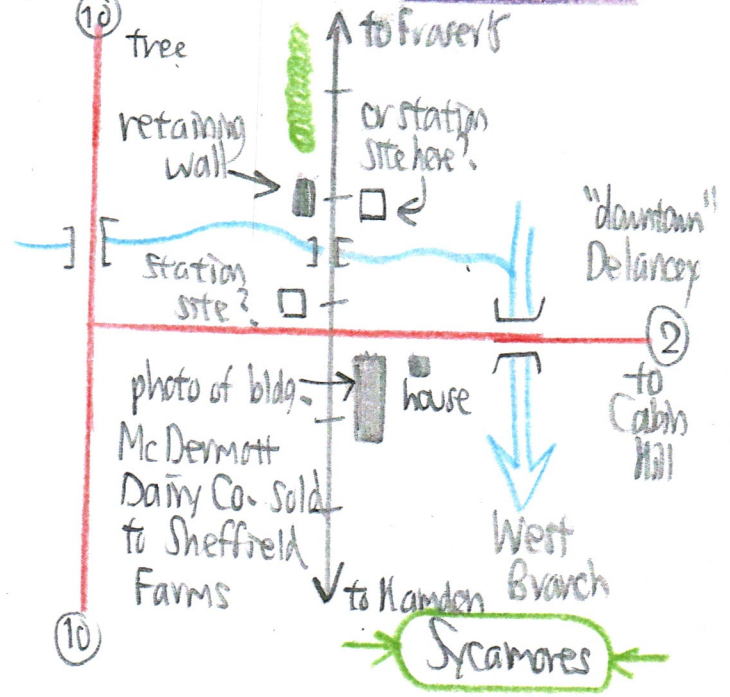 10
tree
to Fraser's
retaining
wall
or station
site here?
"downtown"
Delancey
station
site?
2
to
Cabin
Hill
photo of bldg.
house
McDermott
Dairy Co. sold
to Sheffield
Farms
West
Branch
to Hamden
10
Sycamores